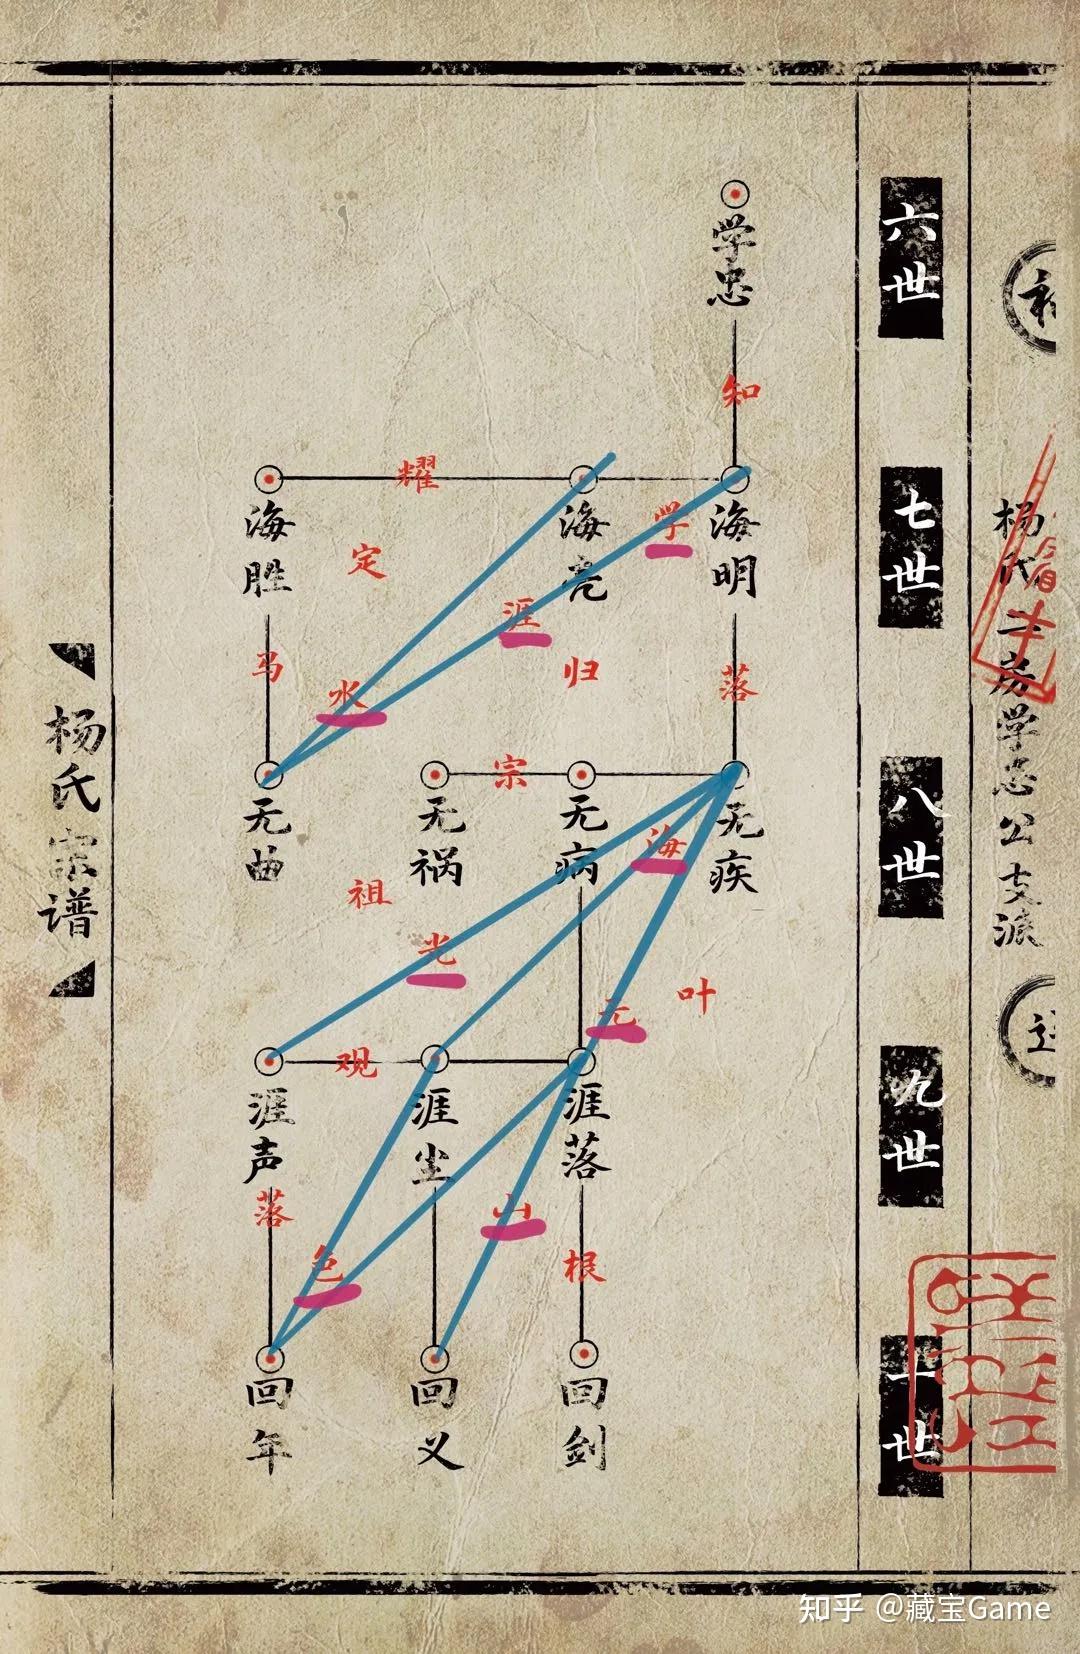 六世
七世
八世
九世
世
杨氏
房学忠公支派
学忠
知
海明
海亮
海胜
耀
学
定
涯
归
落
马
水
无疾
无病
无祸
无曲
宗
海
祖
光
叶
涯落
涯尘
涯声
观
落
色
山
根
回剑
回义
回年
杨氏宗谱
知乎 @藏宝Game